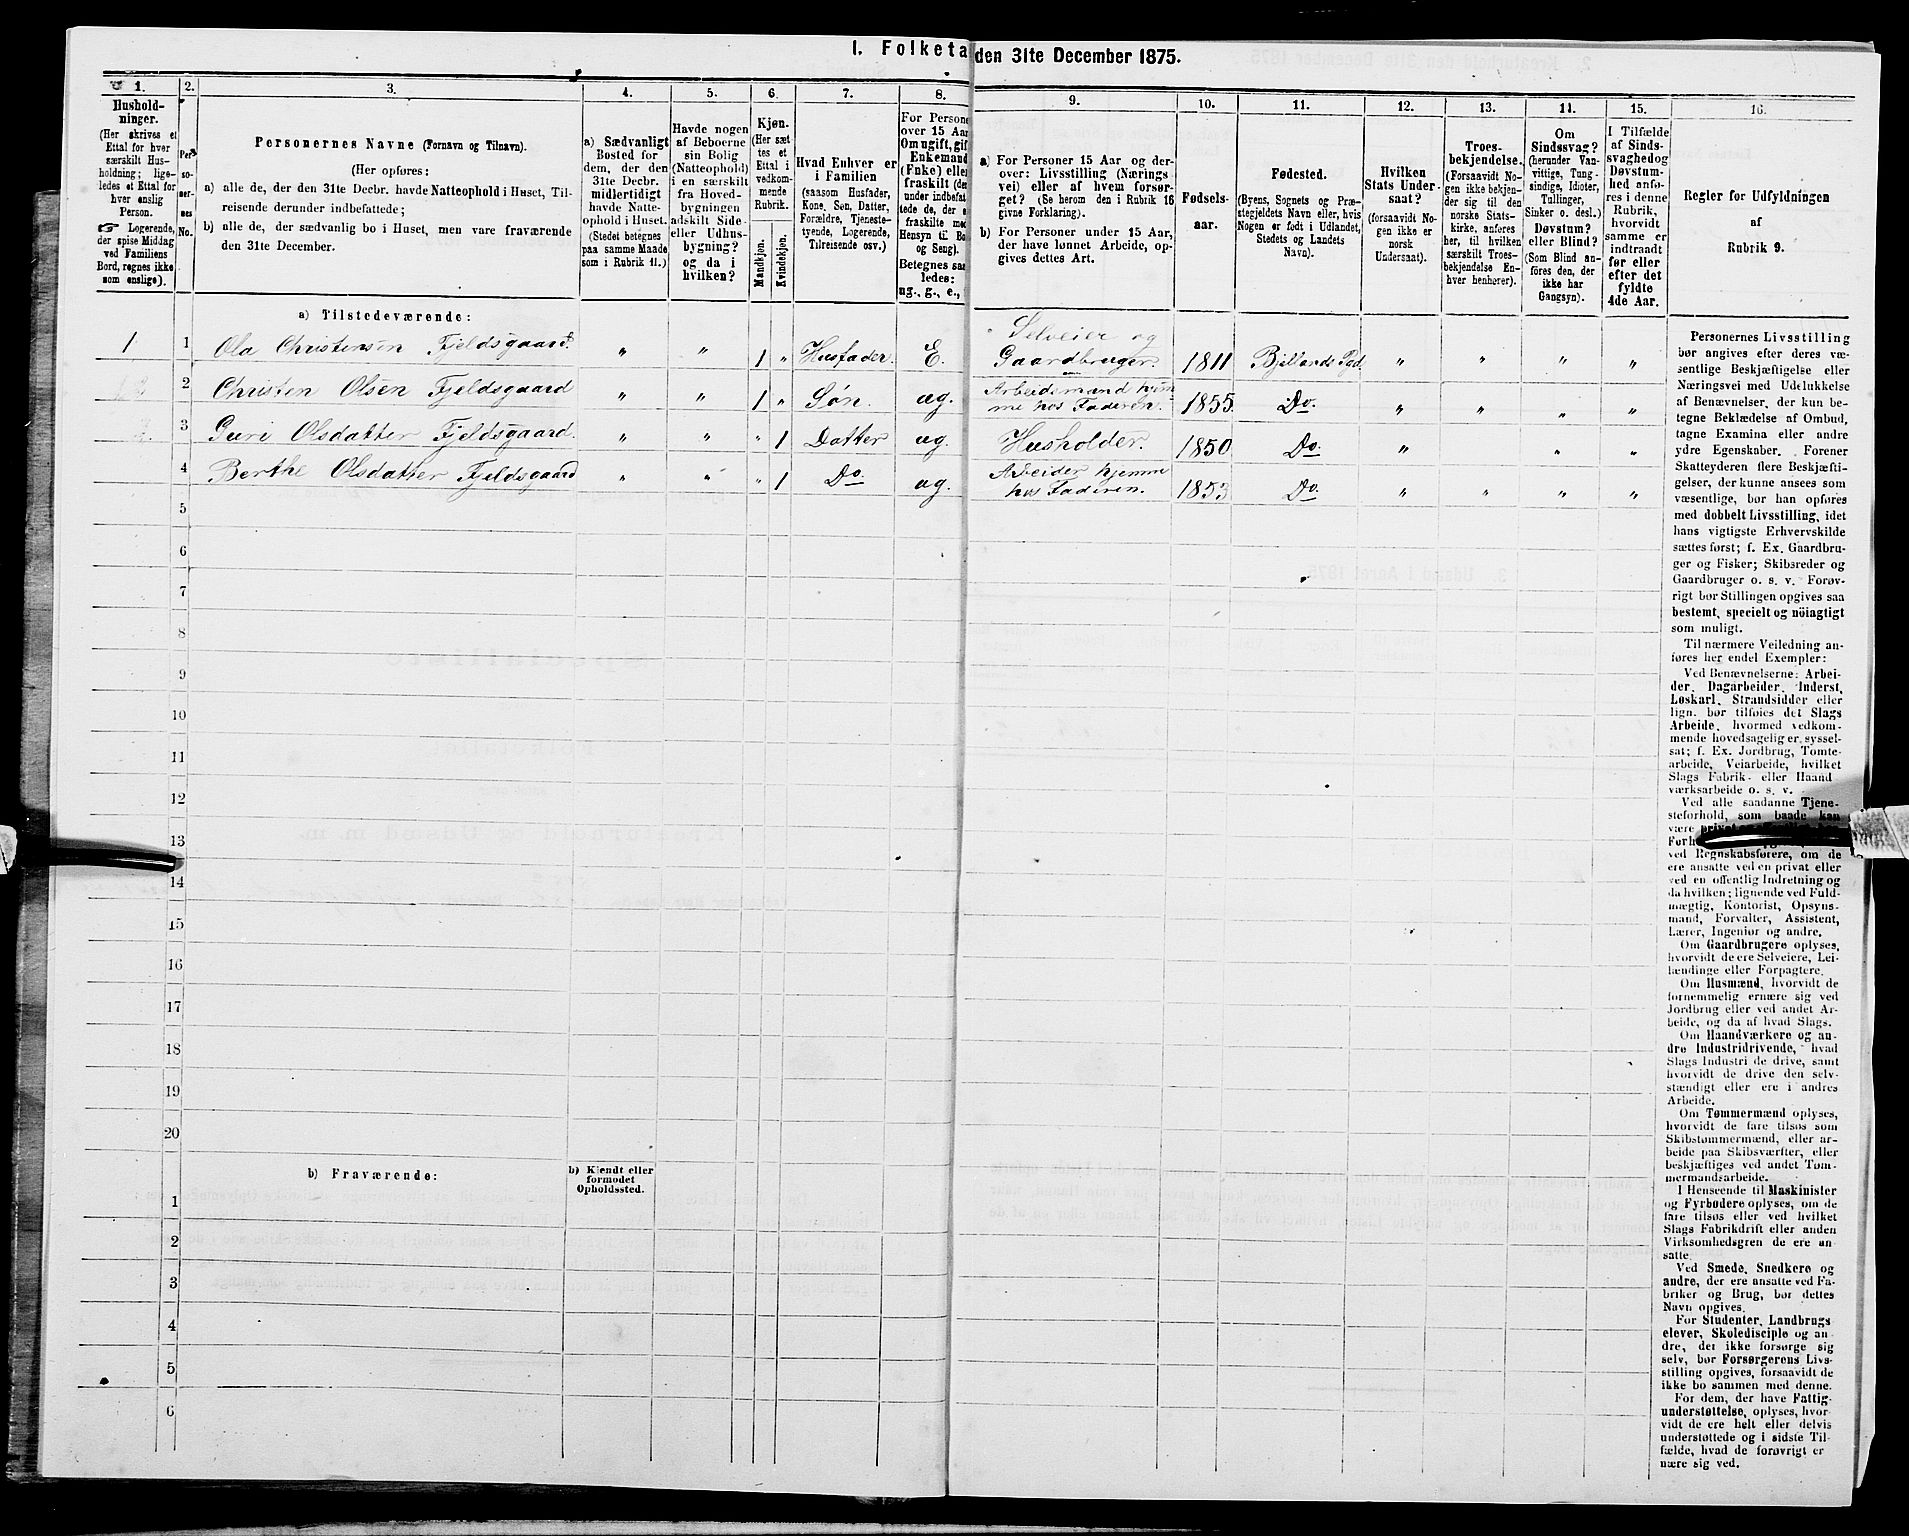 1. Folketa den 31te December 1875.
1. 2. 3. 4. 5. 6. 7. 8. 9. 10. 11. 12. 13. 14. 15. 16.
Hushold-
ninger.
(Her skrives et
Ettal for hver
særskilt Hus-
holdning; lige-
ledes et Ettal for
hver enslig
Person.
☞ Logerende,
der spise Middag
ved Familiens
Bord, regnes ikke
som enslige).
Per-
so-
ner-
nes
No.
Personernes Navne (Fornavn og Tilnavn).
(Her opføres:
a) alle de, der den 31te Decbr. havde Natteophold i Huset, Til-
reisende derunder indbefattede;
b) alle de, der sædvanlig bo i Huset, men vare fraværende
den 31te December.
a) Sædvanligt
Bosted for
dem, der den
31te Decbr.
midlertidigt
havde Natte-
ophold i Huset.
(Stedet betegnes
paa samme Maade
som i Rubrik 11.)
Havde nogen
af Beboerne
sin Bolig
(Natteophold)
i en særskilt
fra Hoved-
bygningen
adskilt Side-
eller Udhus-
bygning?
og da i
hvilken?
Kjøn.
(Her sæt
tes et
Ettal i
vedkom-
mende
Rubrik.
Mandkjøn.
Kvindekjøn.
Hvad Enhver er
i Familien
(saasom Husfader,
Kone, Søn, Datter,
Forældre, Tjeneste-
tyende, Logerende,
Tilreisende osv.)
For Persone
over 15 Aar
Om ugift, gif
Enkemand
(Enke) elle
fraskilt (de
under indbefat
tede de, der e
fraskilte me
Hensyn til Bo
og Seng).
Betegnes saa
ledes:
ug., g., e.,
a) For Personer 15 Aar og der-
over: Livsstilling (Nærings
vei) eller af hvem forsør-
get? (Se herom den i Rubrik 16
givne Forklaring).
b) For Personer under 15 Aar,
der have lønnet Arbeide, op-
gives dettes Art.
Fødsels-
aar.
Fødested.
(Byens, Sognets og Præ-
stegjeldets Navn eller, hvis
Nogen er født i Udlandet,
Stedets og Landets
Navn).
Hvilken
Stats Under-
saat?
(forsaavidt No-
gen ikke er
norsk
Undersaat).
Troes-
bekjendelse.
(Forsaavidt No-
gen ikke bekjen-
der sig til den
norske Stats-
kirke, anføres
her, til hvilken
særskilt Troes-
bekjendelse En-
hver henhører).
Om
Sindssvag?
(herunder Van-
vittige, Tung-
sindige, Idioter,
Tullinger,
Sinker o. desl.)
Døvstum?
eller Blind?
(Som Blind an-
føres den, der
ikke har
Gangsyn).
I Tilfælde
af Sinds-
svaghed og
Døvstum-
hed anfø-
res i denne
Rubrik,
hvorvidt
samme er
indtraadt
før eller
efter det
fyldte
4de Aar.
Regler for Udfyldningen
af
Rubrik 9.
a) Tilstedeværende:
1 1 Ola Christensen Fjeldsgaard. " " 1 " Husfader. E. Selveier og Gaardbruger. 1811 Bjellands Pgd. " " " "
2 Christen Olsen Fjeldsgaard " " 1 " Søn. ug. Arbeidsmand hjem me hos Faderen. 1855. Do. " " " "
3 Guri Olsdatter Fjeldsgaard. " " " 1 Datter ug. Husholder. 1850 Do. " " "
4 Berthe Olsdatter Fjeldsgaard " " " 1 Do. ug. Arbeider hjemme hos Faderen. 1853 Do. " " " "
5
6
7
8
9
10
11
12
13
14
15
16
17
18
19
20
b) Fraværende:
b) Kjendt eller
formodet
Opholdssted.
1
2
3
4
5
6
Personernes Livsstilling
bør angives efter deres væ-
sentlige Beskjæftigelse eller
Næringsvei med Udelukkelse
af Benævnelser, der kun be-
tegne Beklædelse af Ombud,
tagne Examina eller andre
ydre Egenskaber. Forener
Skatteyderen flere Beskjæfti-
gelser, der kunne ansees som
væsentlige, bør han opføres
med dobbelt Livsstilling, idet
hans vigtigste Erhvervskilde
sættes først; f. Ex. Gaardbru-
ger og Fisker; Skibsreder og
Gaardbruger o. s. v. Forøv-
rigt bør Stillingen opgives saa
bestemt, specielt og nöiagtigt
som muligt.
Til nærmere Veiledning an-
føres her endel Exempler:
Ved Benævnelserne: Arbei-
der, Dagarbeider, Inderst,
Løskarl, Strandsidder eller
lign. bør tilføies det Slags
Arbeide, hvormed vedkom-
mende hovedsagelig er syssel-
sat; f. Ex. Jordbrug, Tomte-
arbeide, Veiarbeide, hvilket
Slags Fabrik- eller Haand
værksarbeide o. s. v.
Ved alle saadanne Tjene-
steforhold, som baade kan
være
Forh
ved Regnskabsførere, om de
ere ansatte ved en privat eller
ved en offentlig Indretning og
da hvilken; lignende ved Fuld-
mægtig, Kontorist, Opsyns-
mand, Forvalter, Assistent,
Lærer, Ingeniør og andre.
Om Gaardbrugere oplyses,
hvorvidt de ere Selveiere, Lei-
lændinge eller Forpagtere.
Om Husmænd, hvorvidt de
fornemmelig ernære sig ved
Jordbrug eller ved andet Ar-
beide, og da af hvad Slags.
Om Haandværkere og an-
dre Industridrivende, hvad
Slags Industri de drive, samt
hvorvidt de drive den selv-
stændigt eller ere i andres
Arbeide.
Om Tømmermænd oplyses,
hvorvidt de fare tilsøs som
Skibstømmermænd, eller ar-
beide paa Skibsværfter, eller
beskjæftiges ved andet Tøm-
mermandsarbeide.
I Henseende til Maskinister
og Fyrbødere oplyses, om de
fare tilsøs eller ved hvilket
Slags Fabrikdrift eller anden
Virksomhedsgren de ere an-
satte.
Ved Smede, Snedkere og
andre, der ere ansatte ved Fa-
briker og Brug, bør dettes
Navn opgives.
For Studenter, Landbrugs
elever, Skoledisciple og an
dre, der ikke forsørge sig
selv, bør Forsørgerens Livs-
stilling opgives, forsaavidt de
ikke bo sammen med denne.
For dem, der have Fattig-
understøttelse, oplyses, hvor-
vidt de ere helt eller delvis
understøttede og i sidste Til-
fælde, hvad de forøvrigt er
nære sig ved.